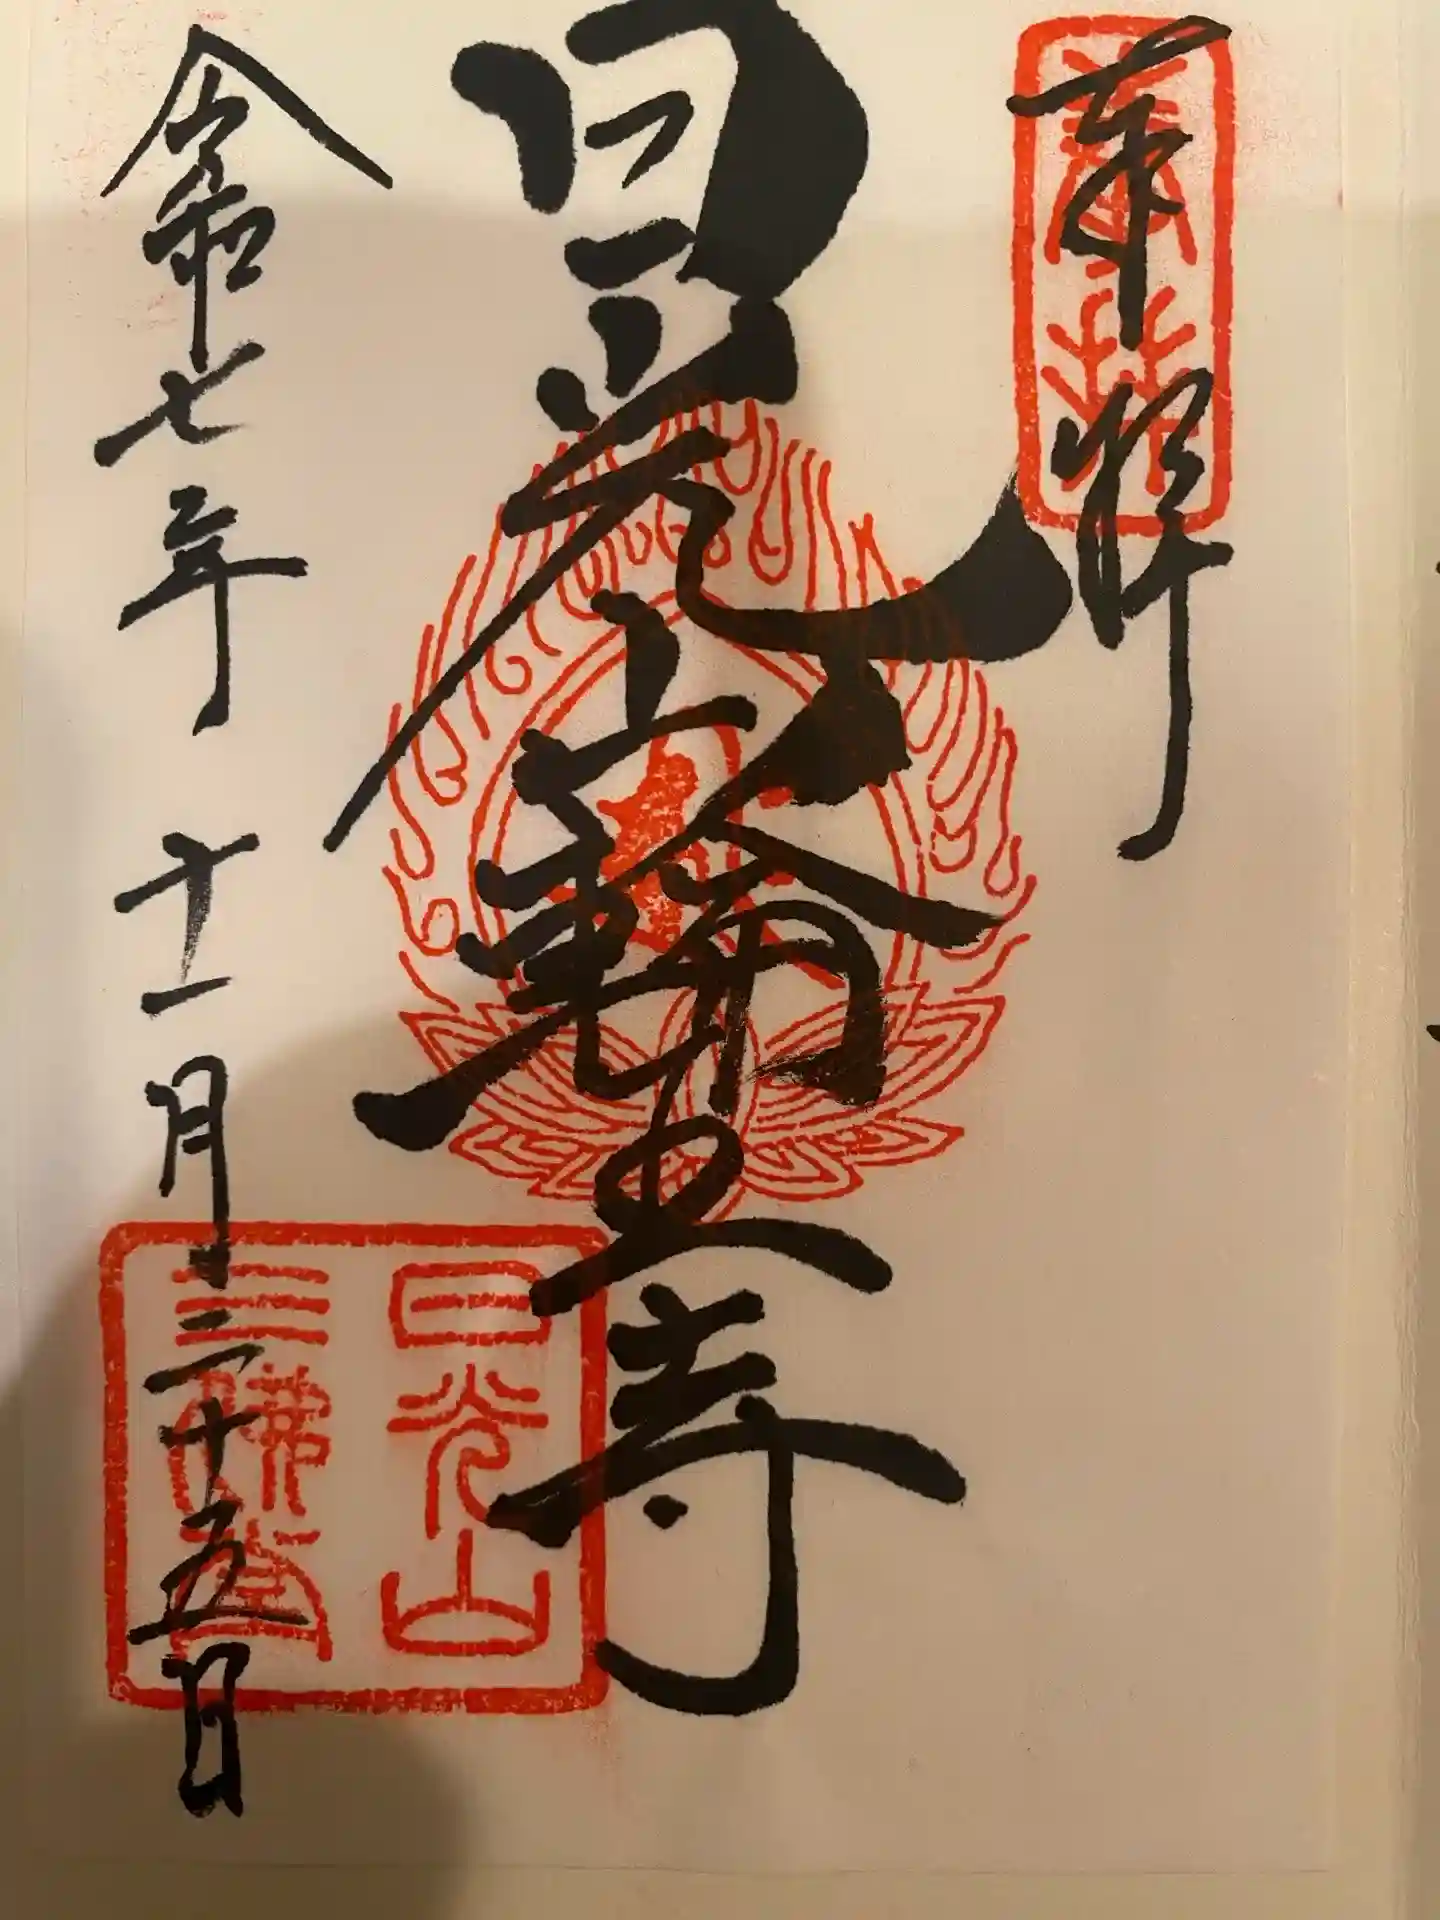 奉拝
奉拝
日光山輪王寺
日光山
三佛堂
令和七年十一月二十五日